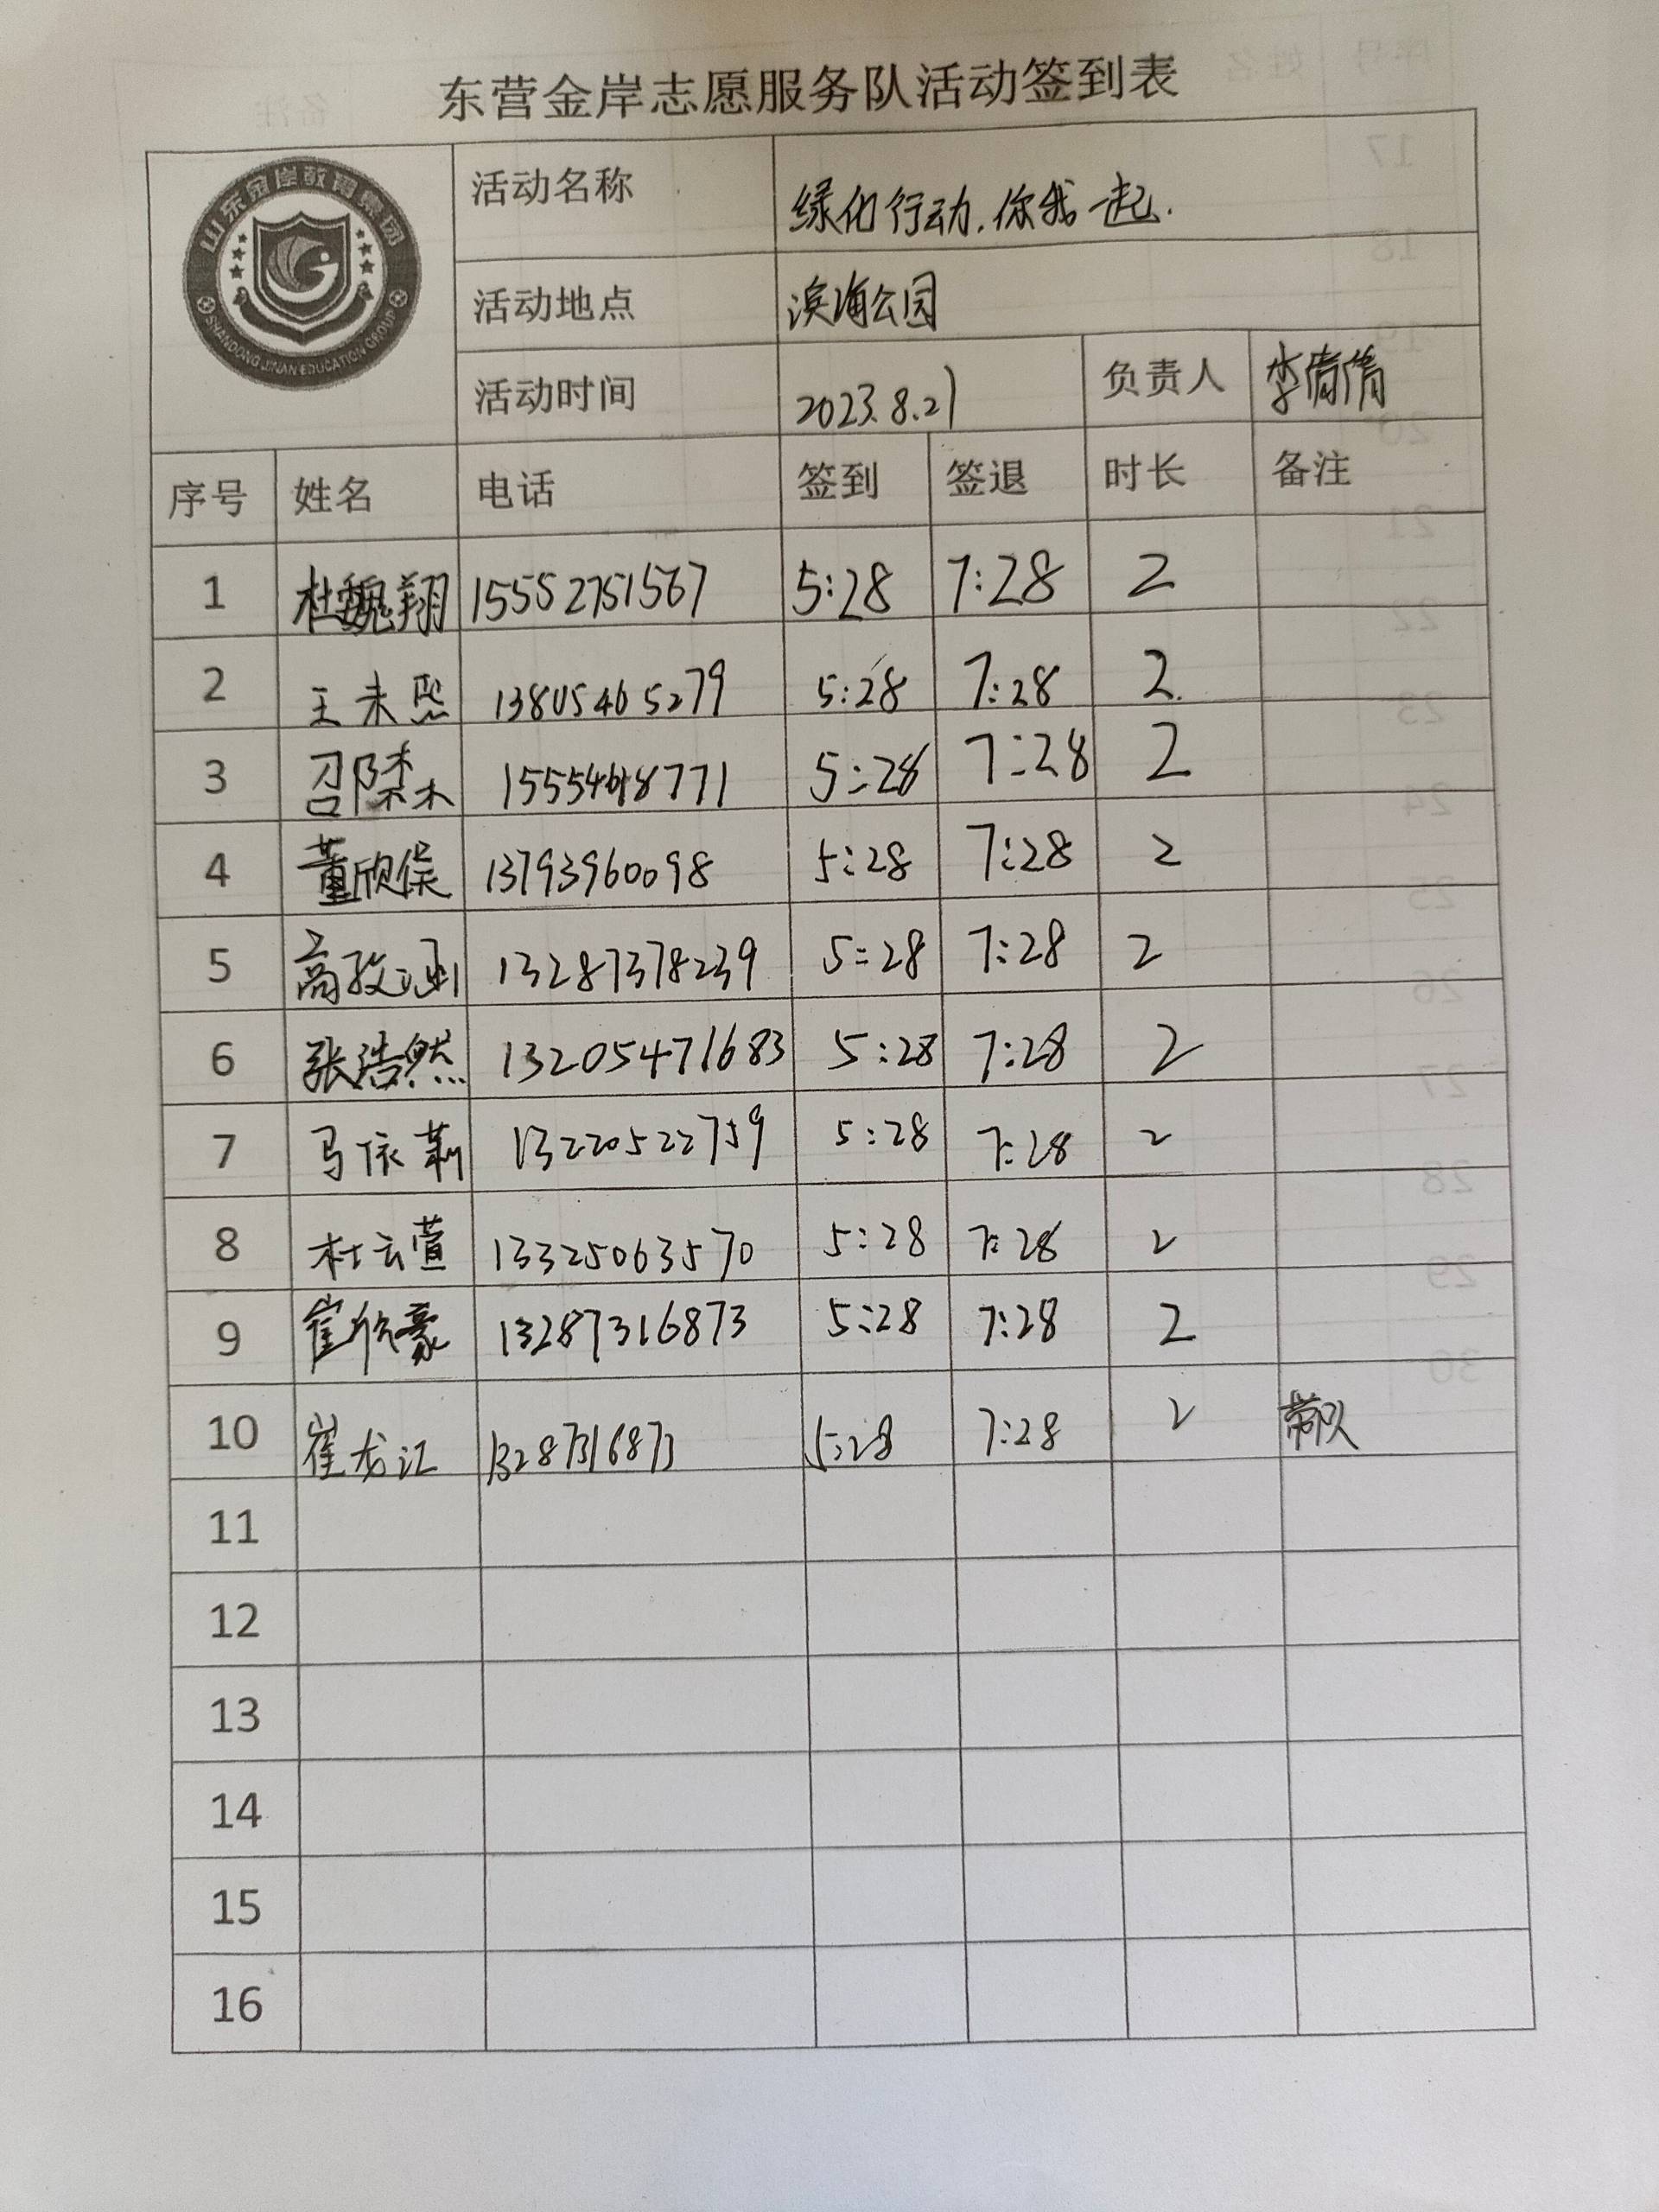 东营金岸志愿服务队活动签到表
山东金岸教育集团
SHANDONG JINAN EDUCATION GROUP
活动名称 绿化行动.你我一起.
活动地点 滨海公园
活动时间 2023.8.21 负责人 李倩倩
序号 姓名 电话 签到 签退 时长 备注
1 杜魏翔 15552751567 5:28 7:28 2
2 王未熙 13805465279 5:28 7:28 2
3 5:28 7:28 2
4 董欣保 13793960098 5:28 7:28 2
5 高孜涵 13287378239 5:28 7:28 2
6 张浩然 13205471683 5:28 7:28 2
7 马依莉 13220522759 5:28 7:28 2
8 杜云萱 13325063570 5:28 7:28 2
9 崔欣豪 13287316873 5:28 7:28 2
10 崔龙江 13287316873 5:28 7:28 2 带队
11
12
13
14
15
16